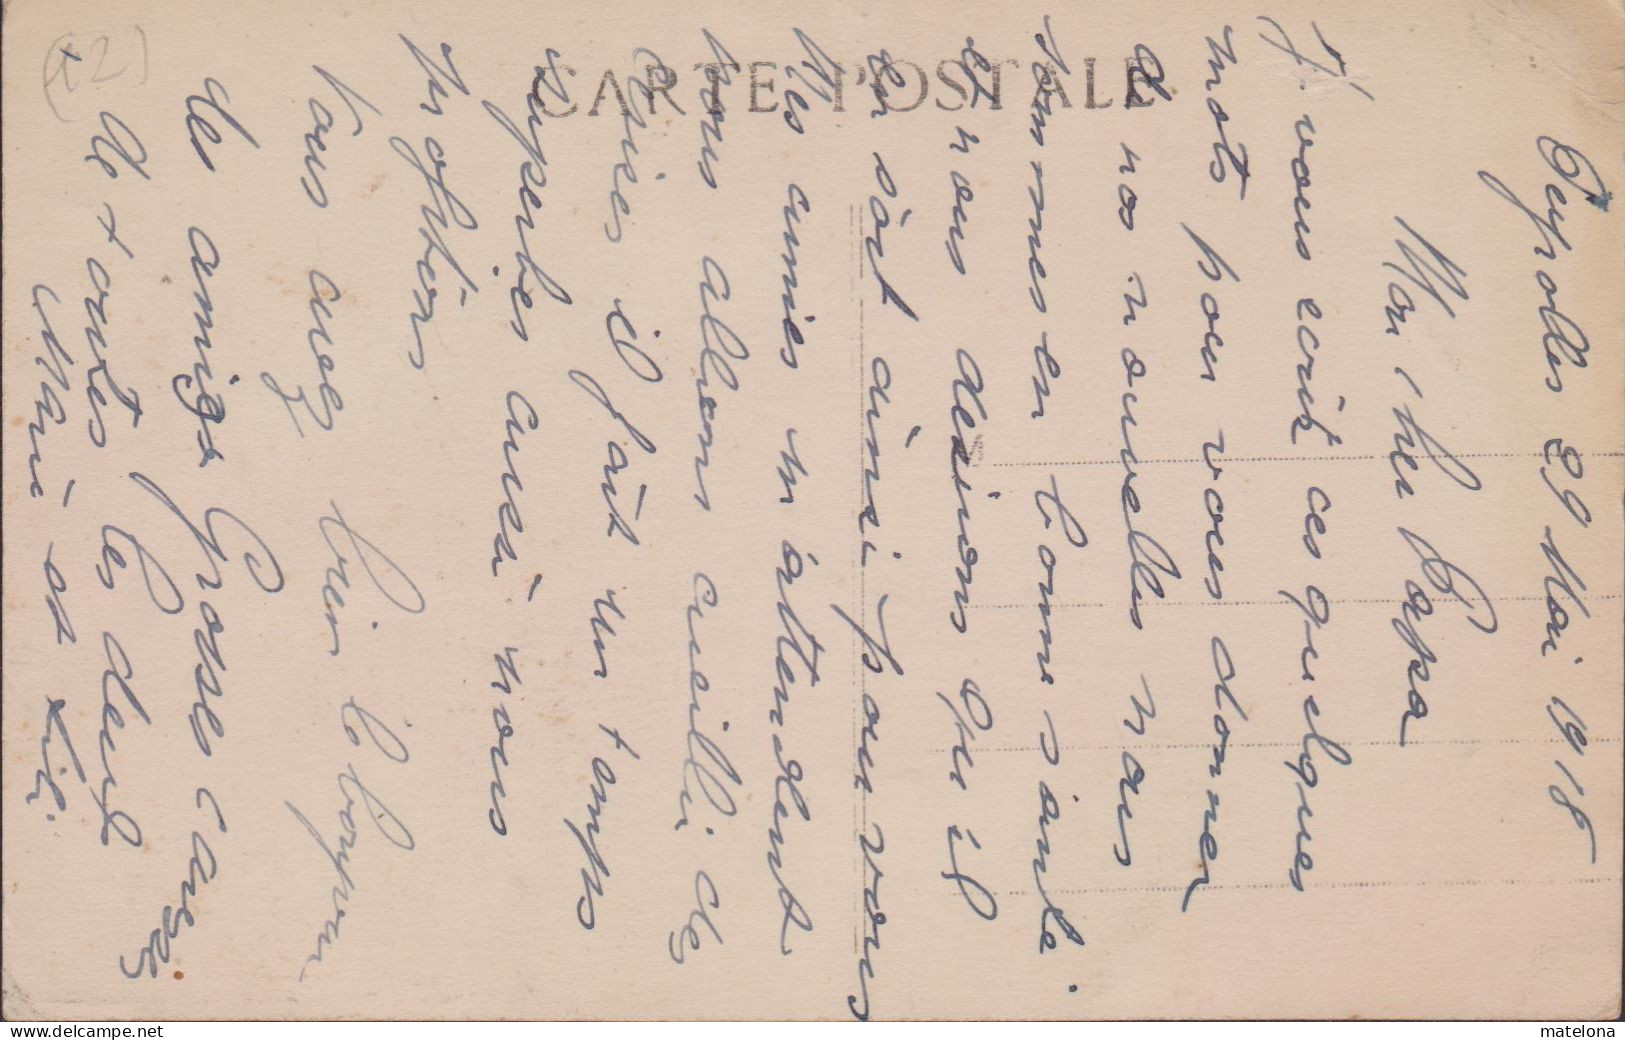 CARTE POSTALE
(22)
Peyrolles 29 Mai 1918
Mon cher Papa
Je vous ecrit ces quelques
mots pour vous donner
de nos nouvelles nous
sommes en bonne sante
et nous desirons qu'il
en soit ainsi pour vous
Mes amies m'attendent
nous allons cueilli des
il fait un temps
superbes aussi nous
profitons
Vous avez bien le bonjour
des amigs Grosses caresses
de toutes les deux
Marie et
www.delcampe.net
matelona